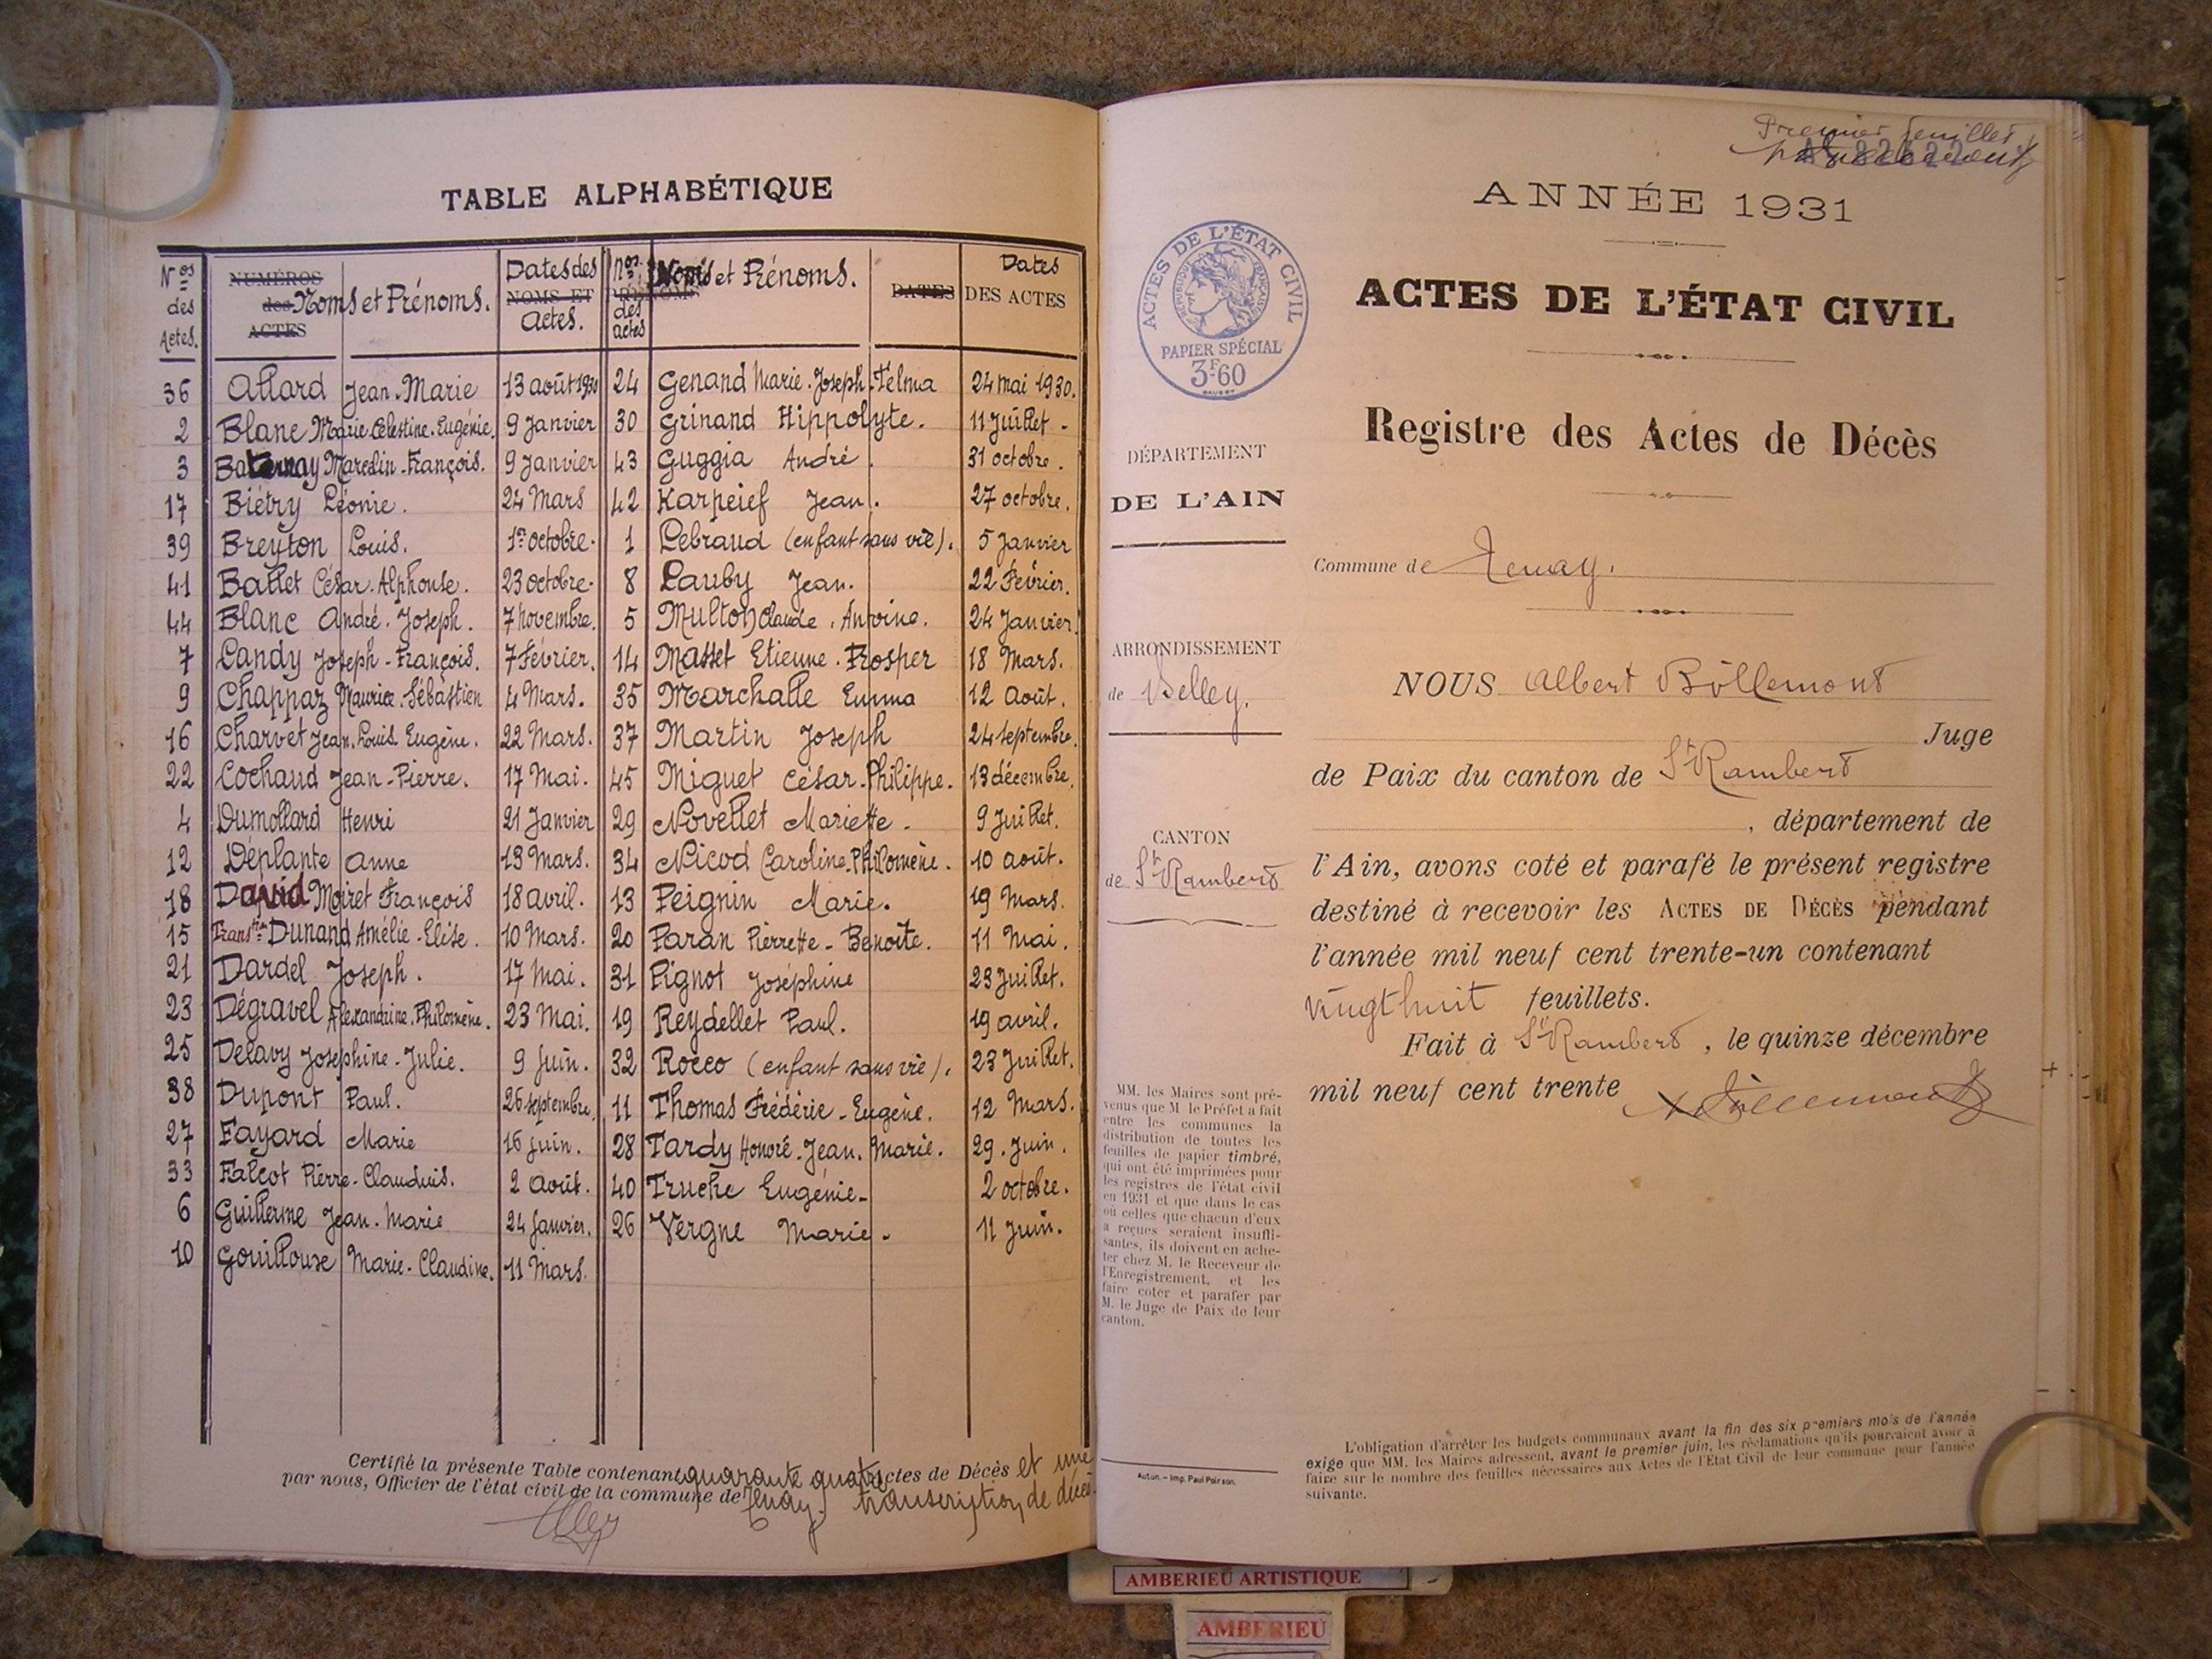 TABLE ALPHABÉTIQUE
Nos des Actes.
NUMÉROS des ACTES
Noms et Prénoms.
Dates des NOMS ET Actes.
Nos des actes
Noms et Prénoms.
DATES
Dates DES ACTES
36 Allard Jean-Marie 13 août 1930 24 Genand Marie-Joseph-Telma 24 mai 1930.
2 Blanc Marie Célestine. Eugénie. 9 Janvier 30 Grinand Hippolyte. 11 Juillet -
3 Baternay Marcelin-François. 9 Janvier 43 Guggia André. 31 octobre.
17 Biétry Léonie. 24 Mars 42 Karpeief Jean. 27 octobre.
39 Breyton Louis. 1er octobre. 1 Lebraud (enfant sans vie). 5 Janvier
41 Ballet César. Alphonse. 23 octobre. 8 Lauby Jean. 22 Février.
44 Blanc André. Joseph. 7 novembre. 5 Multon Claude. Antoine. 24 Janvier.
7 Candy Joseph-François. 7 Février. 14 Masset Etienne. Prosper 18 Mars.
9 Chappaz Maurice. Sébastien 4 Mars. 35 Marchalle Emma 12 Août.
16 Charvet Jean. Louis. Eugène. 22 Mars. 37 Martin Joseph 24 septembre.
22 Cochaud Jean-Pierre. 17 Mai. 45 Miguet César-Philippe. 13 décembre.
4 Dumollard Henri 21 Janvier 29 Novellet Mariette. 9 Juillet.
12 Déplante Anne 13 Mars. 34 Nicod Caroline-Philomène. 10 août.
18 David Moiret François 18 avril. 13 Peignin Marie. 19 Mars.
15 Dunand Amélie-Elise. 10 Mars. 20 Paran Pierrette-Benoîte. 11 Mai.
21 Dardel Joseph. 17 Mai. 31 Pignot Joséphine 23 Juillet.
23 Dégravel Alexandrine. Philomène. 23 Mai. 19 Reydellet Paul. 19 avril.
25 Delavy Joséphine-Julie. 9 Juin. 32 Rocco (enfant sans vie). 23 Juillet.
38 Dupont Paul. 26 septembre. 11 Thomas Frédéric-Eugène. 12 Mars.
27 Fayard Marie 16 Juin. 28 Tardy Honoré. Jean. Marie. 29. Juin.
33 Falcot Pierre-Claudius. 2 Août. 40 Truche Eugénie- 2 octobre.
6 Guillerme Jean. Marie 24 Janvier. 26 Vergne Marie. 11 Juin.
10 Gouillouse Marie-Claudine. 11 Mars.
Certifié la présente Table contenant quarante quatre actes de Décès et une
par nous, Officier de l'état civil de la commune de Tenay. transcription de décès
Premier feuillet
ANNÉE 1931
ACTES DE L'ÉTAT CIVIL
RÉPUBLIQUE FRANÇAISE
PAPIER SPÉCIAL
3F60
ACTES DE L'ÉTAT CIVIL
Registre des Actes de Décès
DÉPARTEMENT
DE L'AIN
Commune de Tenay.
ARRONDISSEMENT
de Belley.
NOUS Albert Billemont
Juge
de Paix du canton de St Rambert
, département de
CANTON
de St Rambert
l'Ain, avons coté et parafé le présent registre
destiné à recevoir les ACTES DE DÉCÈS pendant
l'année mil neuf cent trente-un contenant
vingt huit feuillets.
Fait à St Rambert, le quinze décembre
mil neuf cent trente
MM. les Maires sont pré-
venus que M le Préfet a fait
entre les communes la
distribution de toutes les
feuilles de papier timbré,
qui ont été imprimées pour
les registres de l'état civil
en 1931 et que dans le cas
où celles que chacun d'eux
a reçues seraient insuffi-
santes, ils doivent en ache-
ter chez M. le Receveur de
l'Enregistrement, et les
faire coter et parafer par
M. le Juge de Paix de leur
canton.
Autun. — Imp. Paul Poirson.
L'obligation d'arrêter les budgets communaux avant la fin des six premiers mois de l'année
exige que MM. les Maires adressent, avant le premier juin, les réclamations qu'ils pourraient avoir à
faire sur le nombre des feuilles nécessaires aux Actes de l'État Civil de leur commune pour l'année
suivante.
AMBERIEU ARTISTIQUE
AMBERIEU